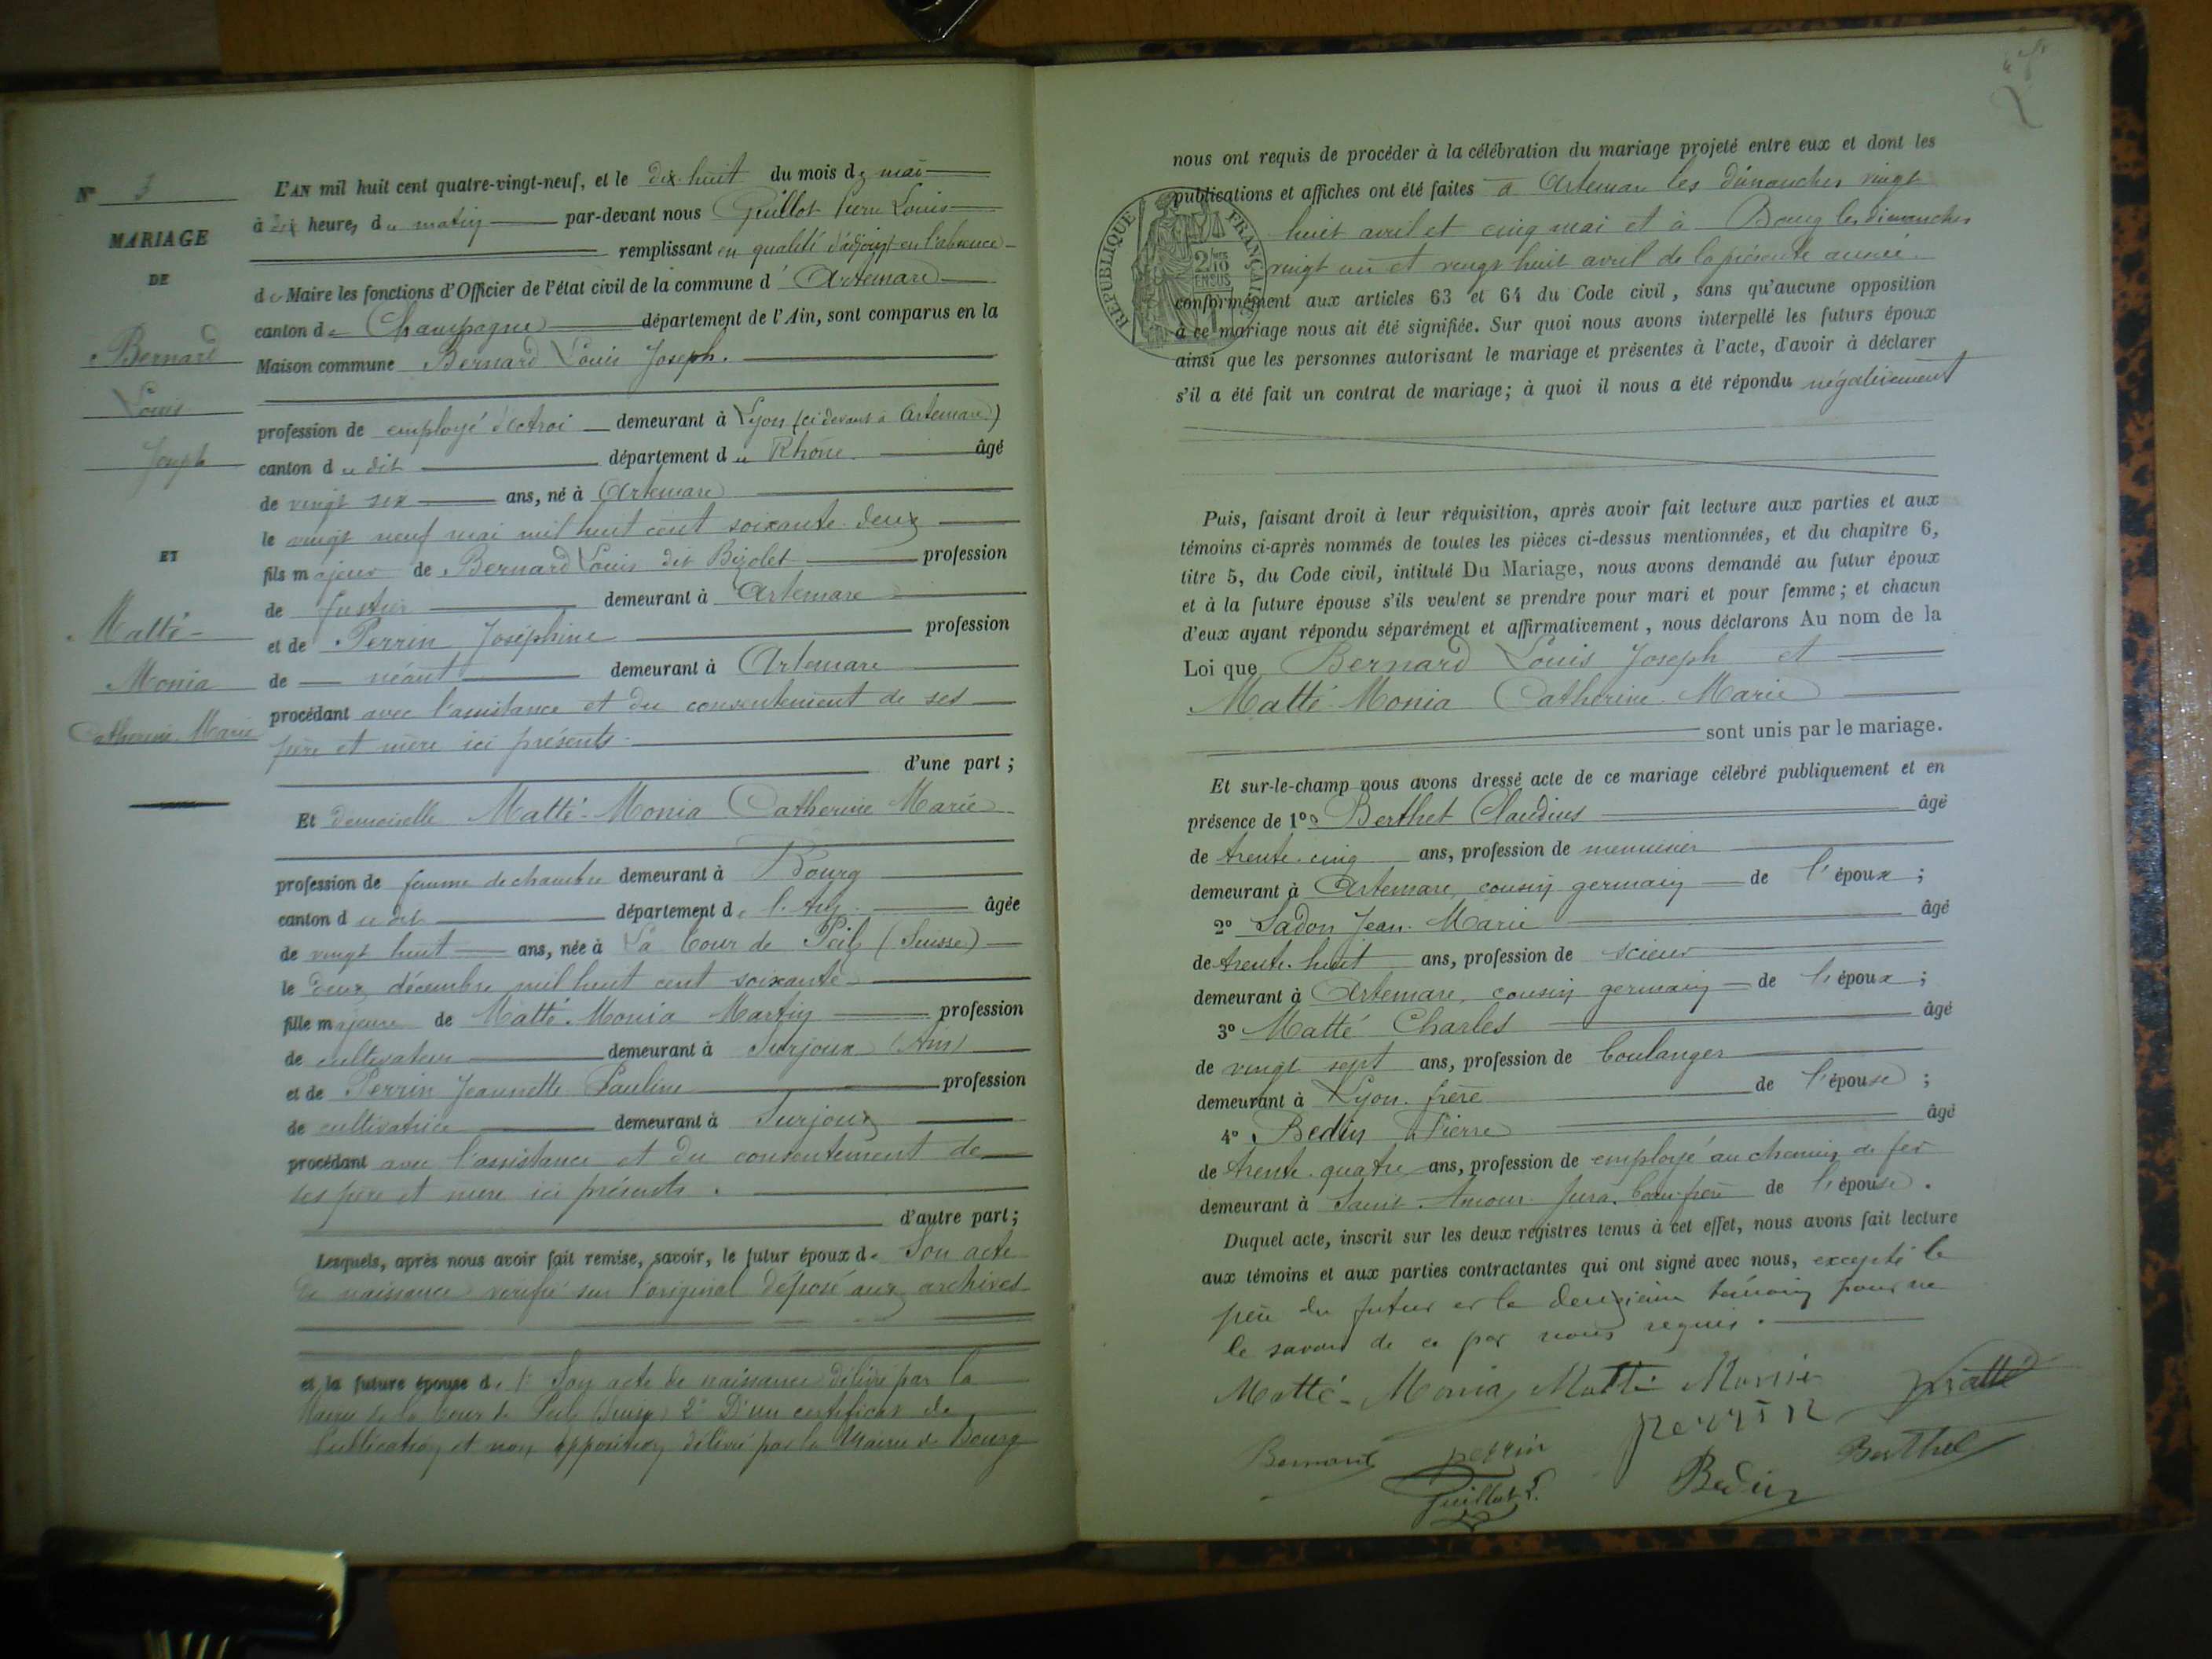 N° 3
MARIAGE
DE
Bernard
Louis
Joseph
ET
Matté-
Monia
Catherine Marie
L'AN mil huit cent quatre-vingt-neuf, et le dix-huit du mois de mai
à dix heures du matin par-devant nous Guillot Pierre Louis
remplissant en qualité d'adjoint en l'absence
du Maire les fonctions d'Officier de l'état civil de la commune d'Artemare
canton de Champagne département de l'Ain, sont comparus en la
Maison commune Bernard Louis Joseph.
profession de employé d'octroi demeurant à Lyon (ci devant à Artemare)
canton du dit département du Rhône âgé
de vingt six ans, né à Artemare
le vingt neuf mai mil huit cent soixante deux
fils majeur de Bernard Louis dit Bizolet profession
de demeurant à Artemare
et de Perrin Joséphine profession
de néant demeurant à Artemare
procédant avec l'assistance et du consentement de ses
père et mère ici présents.
d'une part ;
Et demoiselle Matté-Monia Catherine Marie
profession de femme de chambre demeurant à Bourg
canton du dit département de l'Ain âgée
de vingt huit ans, née à La Tour de Peilz (Suisse)
le deux décembre mil huit cent soixante
fille majeure de Matté-Monia Martin profession
de cultivateur demeurant à Surjoux (Ain)
et de Perrin Jeannette Pauline profession
de cultivatrice demeurant à Surjoux
procédant avec l'assistance et du consentement de
ses père et mère ici présents.
d'autre part;
Lesquels, après nous avoir fait remise, savoir, le futur époux de Son acte
de naissance vérifié sur l'original déposé aux archives
et la future épouse de 1° Son acte de naissance délivré par la
Mairie de la Tour de Peilz (Suisse) 2° D'un certificat de
Publication et non opposition délivré par la Mairie de Bourg
nous ont requis de procéder à la célébration du mariage projeté entre eux et dont les
publications et affiches ont été faites à Artemare les dimanches vingt
huit avril et cinq mai et à Bourg les dimanches
vingt un et vingt huit avril de la présente année.
RÉPUBLIQUE FRANÇAISE
2/10
EN SUS
conformément aux articles 63 et 64 du Code civil, sans qu'aucune opposition
à ce mariage nous ait été signifiée. Sur quoi nous avons interpellé les futurs époux
ainsi que les personnes autorisant le mariage et présentes à l'acte, d'avoir à déclarer
s'il a été fait un contrat de mariage; à quoi il nous a été répondu négativement
Puis, faisant droit à leur réquisition, après avoir fait lecture aux parties et aux
témoins ci-après nommés de toutes les pièces ci-dessus mentionnées, et du chapitre 6,
titre 5, du Code civil, intitulé Du Mariage, nous avons demandé au futur époux
et à la future épouse s'ils veulent se prendre pour mari et pour femme; et chacun
d'eux ayant répondu séparément et affirmativement, nous déclarons Au nom de la
Loi que Bernard Louis Joseph et
Matté-Monia Catherine-Marie
sont unis par le mariage.
Et sur-le-champ nous avons dressé acte de ce mariage célébré publiquement et en
présence de 1° Berthet Claudius âgé
de trente-cinq ans, profession de menuisier
demeurant à Artemare, cousin germain de l'époux ;
2° Ladon Jean-Marie âgé
de trente-huit ans, profession de scieur
demeurant à Artemare, cousin germain de l'époux ;
3° Matté Charles âgé
de vingt sept ans, profession de boulanger
demeurant à Lyon. frère de l'épouse ;
4° Bedin Pierre âgé
de trente-quatre ans, profession de employé au chemin de fer
demeurant à Saint-Amour Jura. beau-frère de l'épouse.
Duquel acte, inscrit sur les deux registres tenus à cet effet, nous avons fait lecture
aux témoins et aux parties contractantes qui ont signé avec nous, excepté le
père du futur et le deuxième témoin pour ne
le savoir de ce par nous requis.
Matté-Monia Matté Monia Matté
Bernard perrin perrin Berthet
Guillot L. Bedin